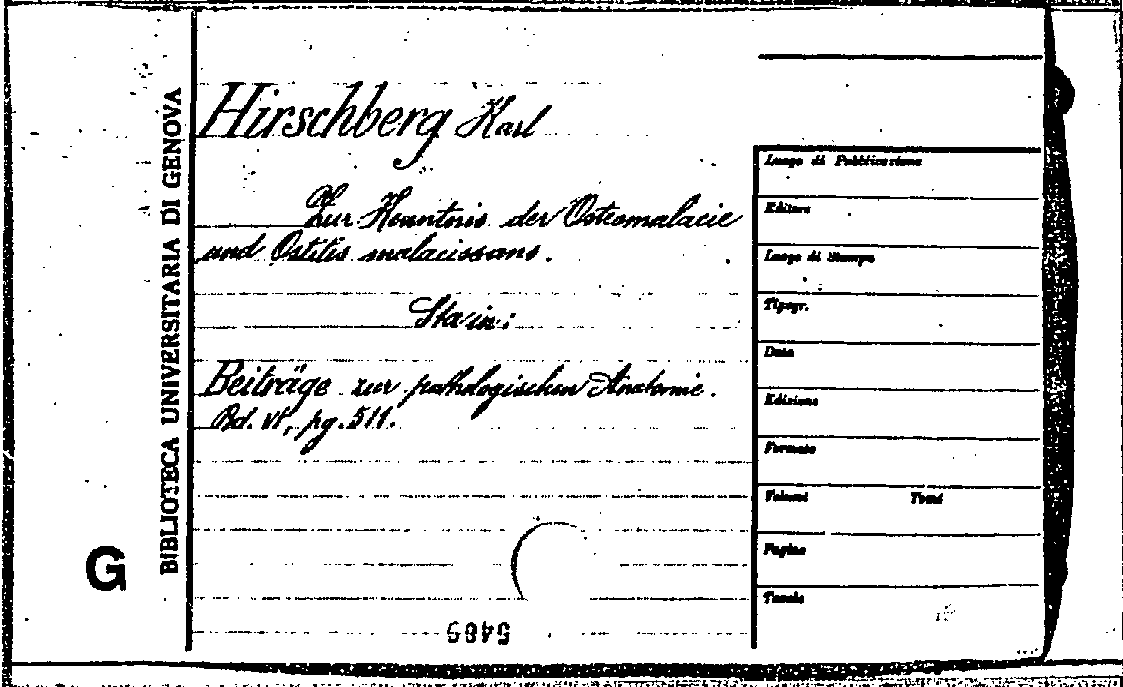 BIBLIOTECA UNIVERSITARIA DI GENOVA
G
Hirschberg Karl
Zur Kenntnis der Osteomalacie
und Ostitis malacissans.
Sta in:
Beiträge zur pathologischen Anatomie.
Bd. VI, pg. 511.
5485
Luogo di Pubblicazione
Editore
Luogo di Stampa
Tipogr.
Data
Edizione
Formato
Volumi Tomi
Pagine
Tavole